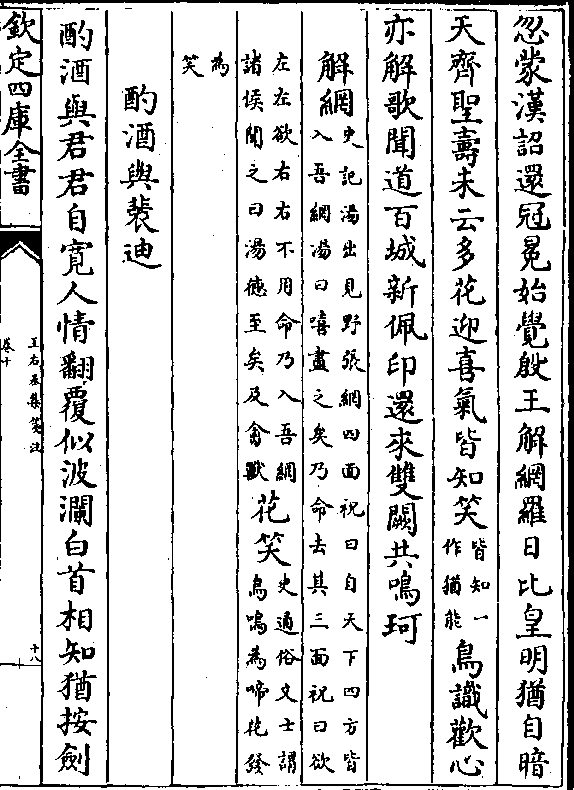 忽蒙漢詔還冠冕始覺殷王解網羅日比皇明猶自暗
天齊聖壽未云多花迎喜氣皆知笑皆知一作猶能鳥識歡心
亦解歌聞道百城新佩印還來雙闕共鳴珂
解網史記湯出見野張網四面祝曰自天下四方皆入吾網湯曰嘻盡之矣乃命去其三面祝曰欲
左左欲右右不用命乃入吾網諸侯聞之曰湯德至矣及禽獸花笑史通俗文士謂鳥鳴為啼花發
為笑
酌酒與裴迪
酌酒與君君自寛人情翻覆似波瀾白首相知猶按劍
欽定四庫全書
王右丞集箋注
卷十
十八